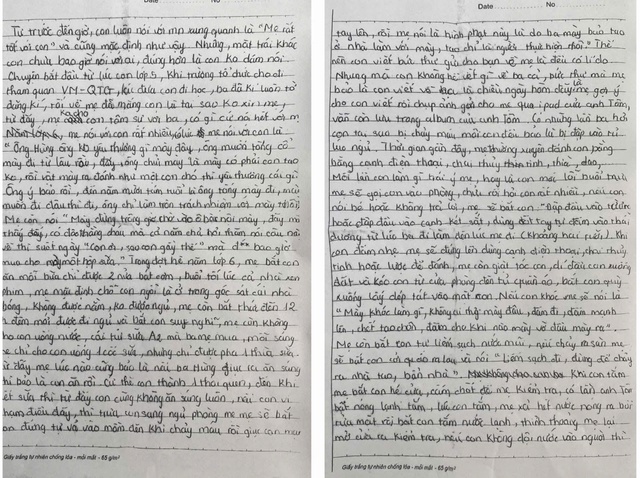 Date No
Từ trước đến giờ, con luôn nói với mn xung quanh là "Mẹ rất
tốt với con" và cũng mặc định như vậy. Nhưng, mặt trái khác
con chưa bao giờ nói với ai, đúng hơn là con ko dám nói.
Chuyện bắt đầu từ lúc con lớp 5, khi trường tổ chức cho đi
tham quan VM-QTG, lúc đưa con đi học, ba đã kí luôn tờ
đăng kí, rồi về mẹ đã mắng con là tại sao ko xin mẹ,
từ đấy, mẹ ko cho con tâm sự với ba, có gì cứ nói hết với m
Năm lớp 6, mẹ nói với con rất nhiều, lúc mẹ nói với con là
"Ông Hưng ông ko yêu thương gì mày đây, ông muốn tống cổ
mày đi từ lâu rồi, đấy, ông chửi mày là mày có phải con tao
ko, rồi vứt mày ra đánh như một con chó thì yêu thương cái gì.
Ông ý bảo rồi, đến năm mười tám tuổi là ông tống mày đi, mày
muốn đi đâu thì đi, ông chỉ làm tròn trách nhiệm với mày thôi
Mẹ còn nói "Mày đừng trông chờ vào ở bà nội mày, đấy mày
thấy đấy, có đau thằng cháu mà cả năm chả hỏi thăm nổi câu nào
và thì suốt ngày "con ơi, sao con gầy thế" mà đ** bao giờ
mua cho nổi một hộp sữa." Trong đợt hè năm lớp 6, mẹ bắt con
ăn mỗi bữa chỉ được 2 nửa bát cơm, buổi tối lúc cả nhà xem
phim, mẹ mặc định chỗ con ngồi là ở trong góc sát cái nhà
bóng. Không được nằm, ko được ngủ, mẹ còn bắt thức đến 12
h đêm mới được đi ngủ và bắt con suy nghĩ", mẹ còn không
cho con uống nước, cái túi sữa A2 mà ba mẹ mua, mỗi sáng
mẹ chỉ cho con uống 1 cốc sữa, nhưng chỉ được pha 1 thìa sữa.
Từ đấy mẹ lúc nào cũng bảo là nói, ba Hưng giục ra ăn sáng
thì bảo là con ăn rồi. Cứ thế con thành 1 thói quen, đến khi
hết sữa thì từ đấy con cũng không ăn sáng luôn, nếu con vi
phạm điều đấy, thì trưa lên sang ngủ phòng mẹ mẹ sẽ bắt
con đứng tự vả vào mồm đến khi chảy máu rồi giục con mau
Giấy trắng tự nhiên chống lóa - mỏi mắt - 65 g/m²
Date No
tay lên, rồi mẹ nói là hình phạt này là do ba mày bảo tao
ở nhà làm với mày, tao chỉ là người thực hiện thôi." Thế
nên con viết bức thư gửi cho bạn về mẹ là đều có lí do.
Nhưng mà con không hề viết gì về ba cả, bức thư mà mẹ
bảo là con viết về là chiều ngày hôm đấy mẹ gợi ý
cho con viết rồi chụp ảnh gửi cho mẹ qua ipad của anh Tâm,
vẫn còn lưu trong album của anh Tâm. Có những lần ba hỏi
con tại sao bị chảy máu môi con đều bảo là bị đập vào tủ
lúc ngủ. Thời gian gần đây, mẹ thường xuyên đánh con bằng
bằng cạnh điện thoại, chai thủy tinh tinh, thìa, đao,
Mỗi lần con làm gì trái ý mẹ, hoặc là con mới lại buổi trưa
mẹ sẽ gọi con vào phòng, chửi rồi hỏi con rất nhiều, nếu con
nói bé hoặc không trả lời, mẹ sẽ bắt con: "Đập đầu vào tường
hoặc đập đầu vào cạnh két sắt, dùng đốt tay tự đấm vào thái
dương từ lúc ba đi làm đến lúc mẹ đi (khoảng hai rưỡi). Khi
con đấm nhẹ, mẹ sẽ dừng lên dùng cạnh điện thoại, chai thủy
tinh hoặc lược để đánh, mẹ còn giật tóc con, dí đầu con xuống
đất và kéo con từ cửa phòng đến tủ quần áo, bắt con quỳ
xuống lấy dép tát vào mặt con. Nếu con khóc mẹ sẽ nói là
"Mày khóc làm gì, không ai thấy mày đâu, đấm đi, đấm mạnh
lên, chết tao chôn, đấm cho khi nào mày vỡ đầu mày ra".
Mẹ còn bắt con tự liếm sạch nước mũi, nếu chảy ra sàn mẹ
sẽ bắt con cởi quần áo ra lau và nói "Liếm sạch đi, đừng để chảy
ra nhà tao, bẩn nhà". Khi con tắm
mẹ bắt con hé cửa, cấm chốt để mẹ kiểm tra, có lần anh Tâm
bật nóng lạnh tắm, lúc con tắm, mẹ xả hết nước nóng ra bồn
rửa mặt rồi bắt con tắm nước lạnh, thỉnh thoảng mẹ lại
mở cửa ra kiểm tra, nếu con không dội nước vào người thì
Giấy trắng tự nhiên chống lóa - mỏi mắt - 65 g/m²